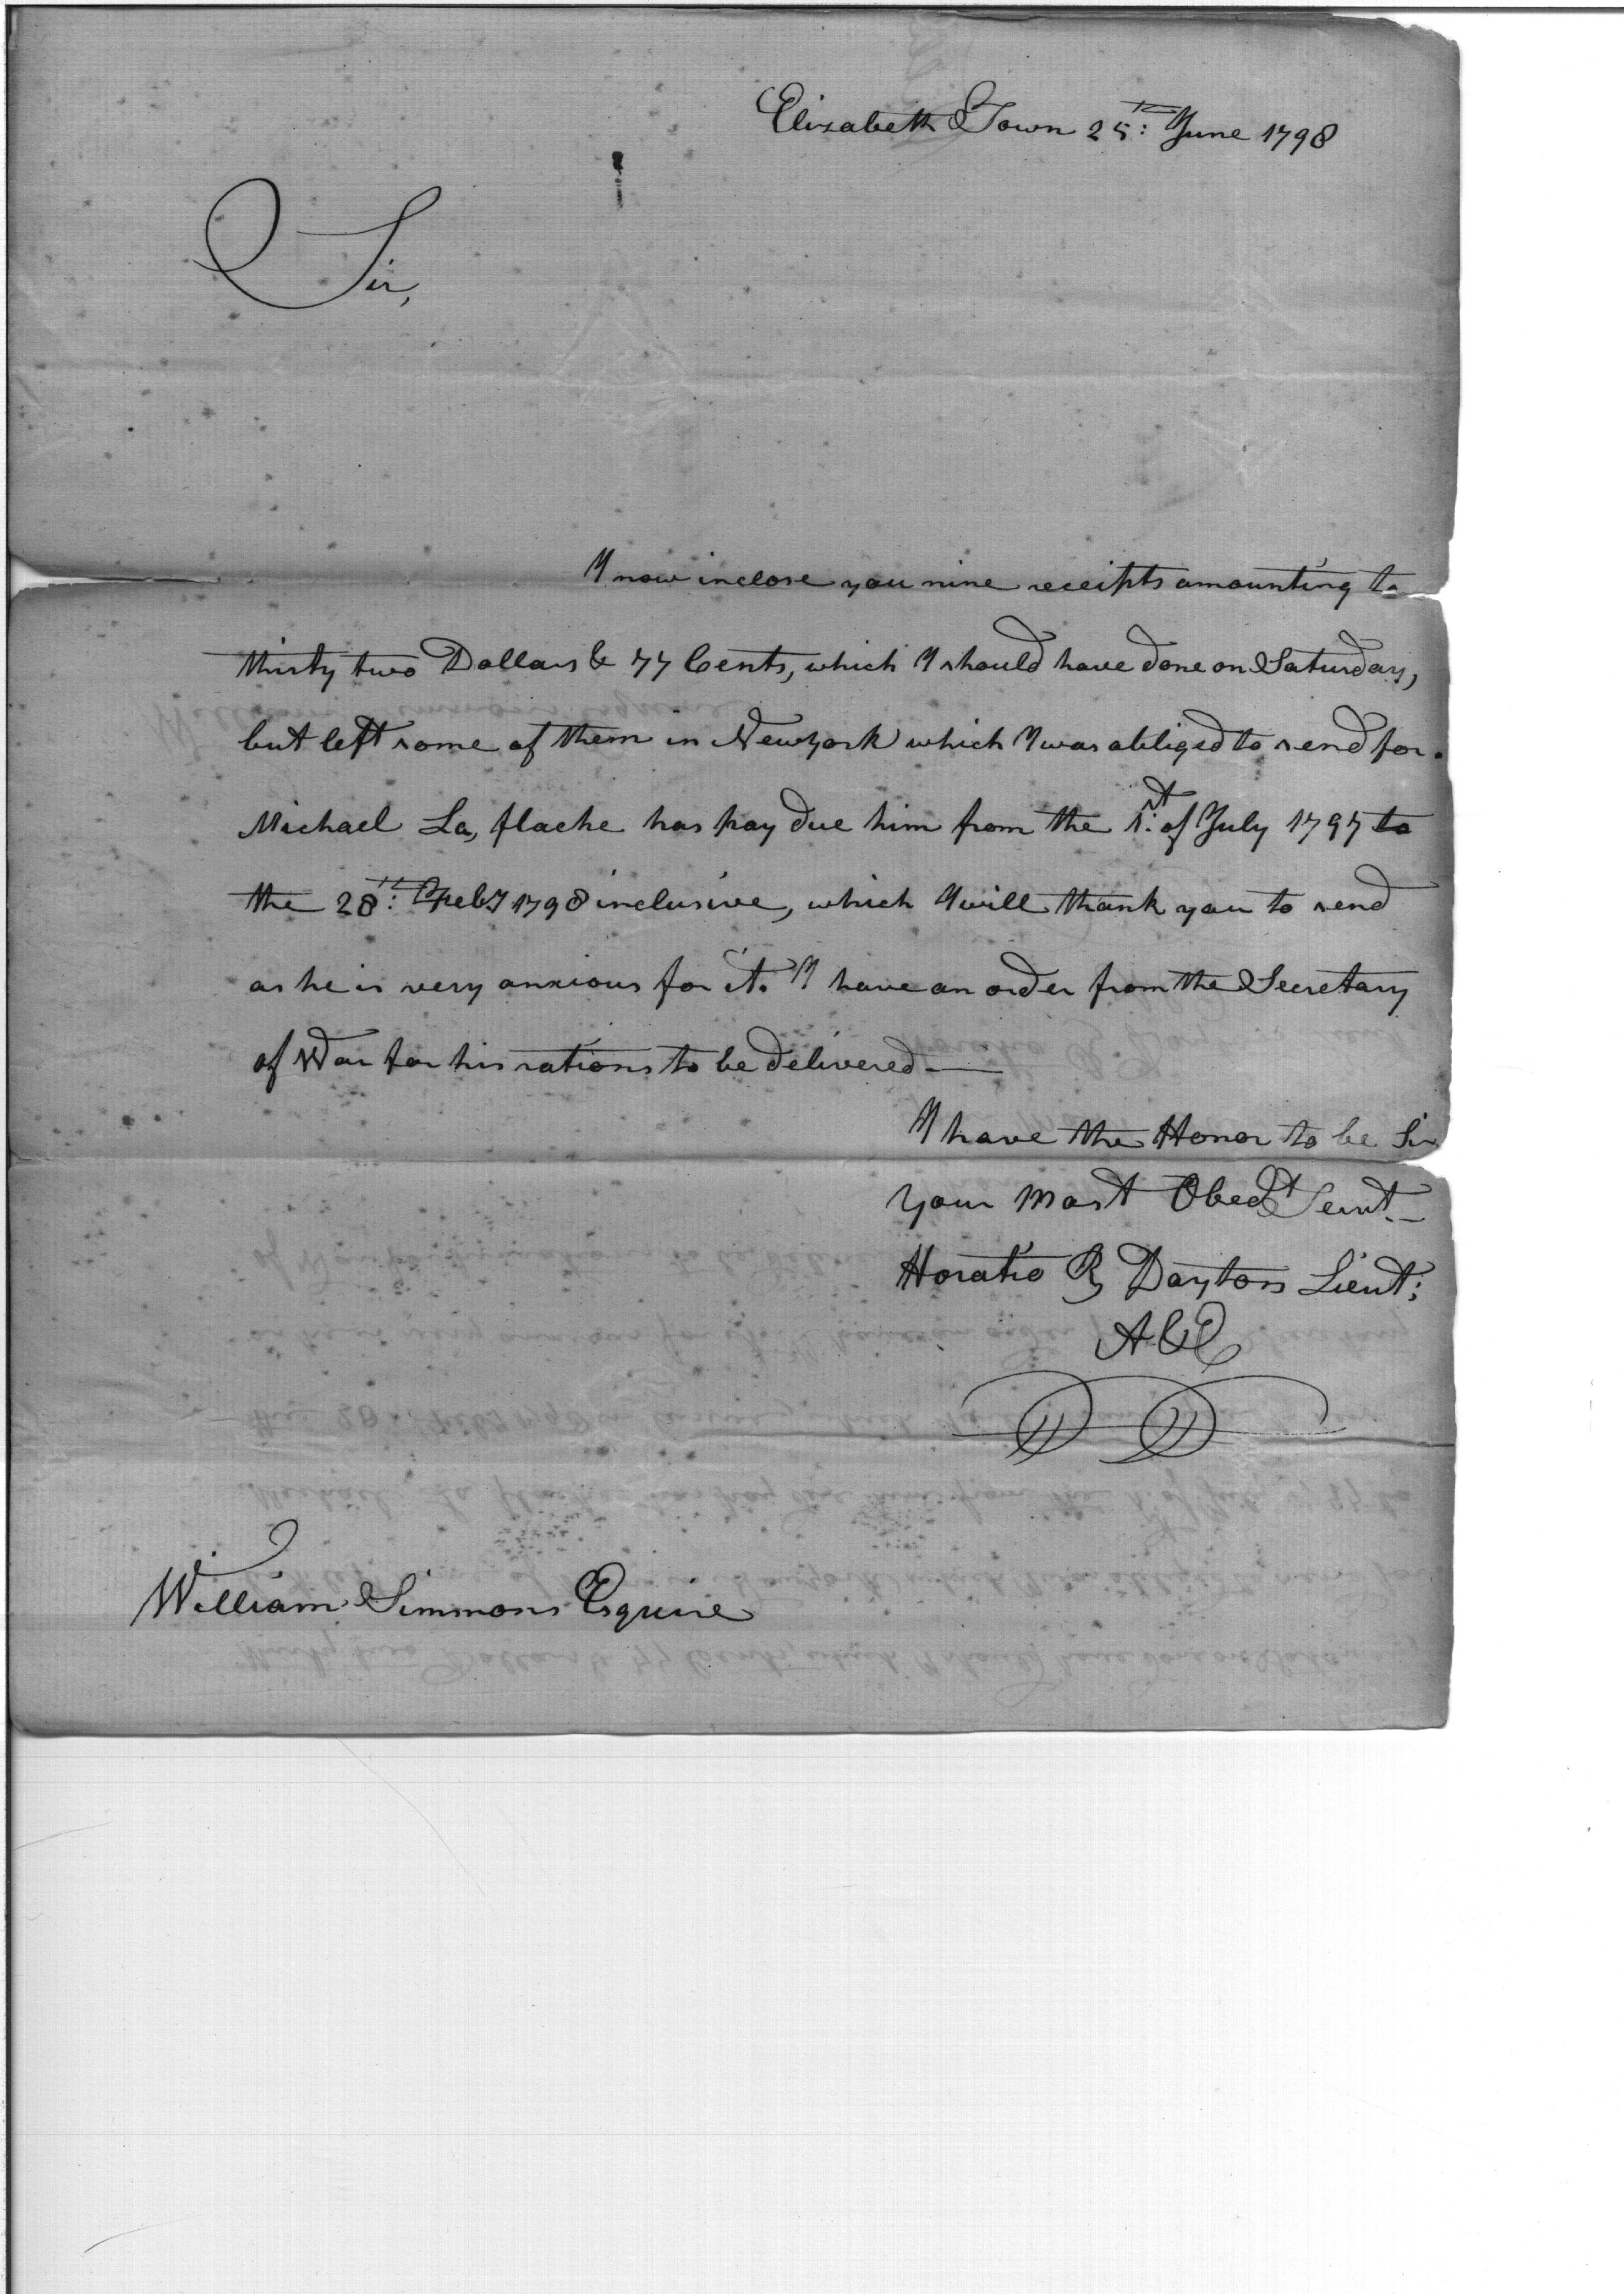 Elizabeth Town 25:th June 1798
Sir,
I now inclose you nine receipts amounting to
thirty two Dollars & 77 Cents, which I should have done on Saturday,
but left some of them in Newyork which I was obliged to send for.
Michael La, flache has pay due him from the 1.st of July 1797 to
the 28:th Feby 1798 inclusive, which I will thank you to send
as he is very anxious for it. I have an order from the Secretary
of War for his rations to be delivered —
I have the Honor to be Sir
your most Obedt Servt. —
Horatio R Dayton Lieut:
William Simmons Esquire